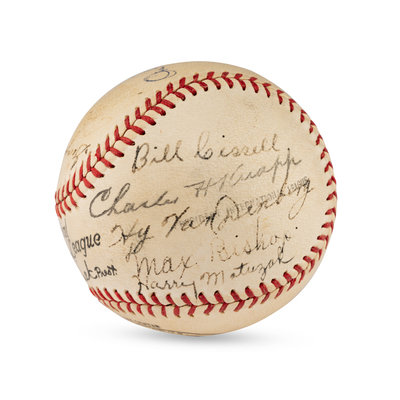 Bill Cissell
Charles H Knapp
Hy Van Denburg
Max Bishop
Harry Matuzak
League
Pres't